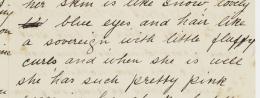 her skin is like snow, lovely
blue eyes and hair like
a sovereign with little fluffy
curls and when she is well
she has such pretty pink